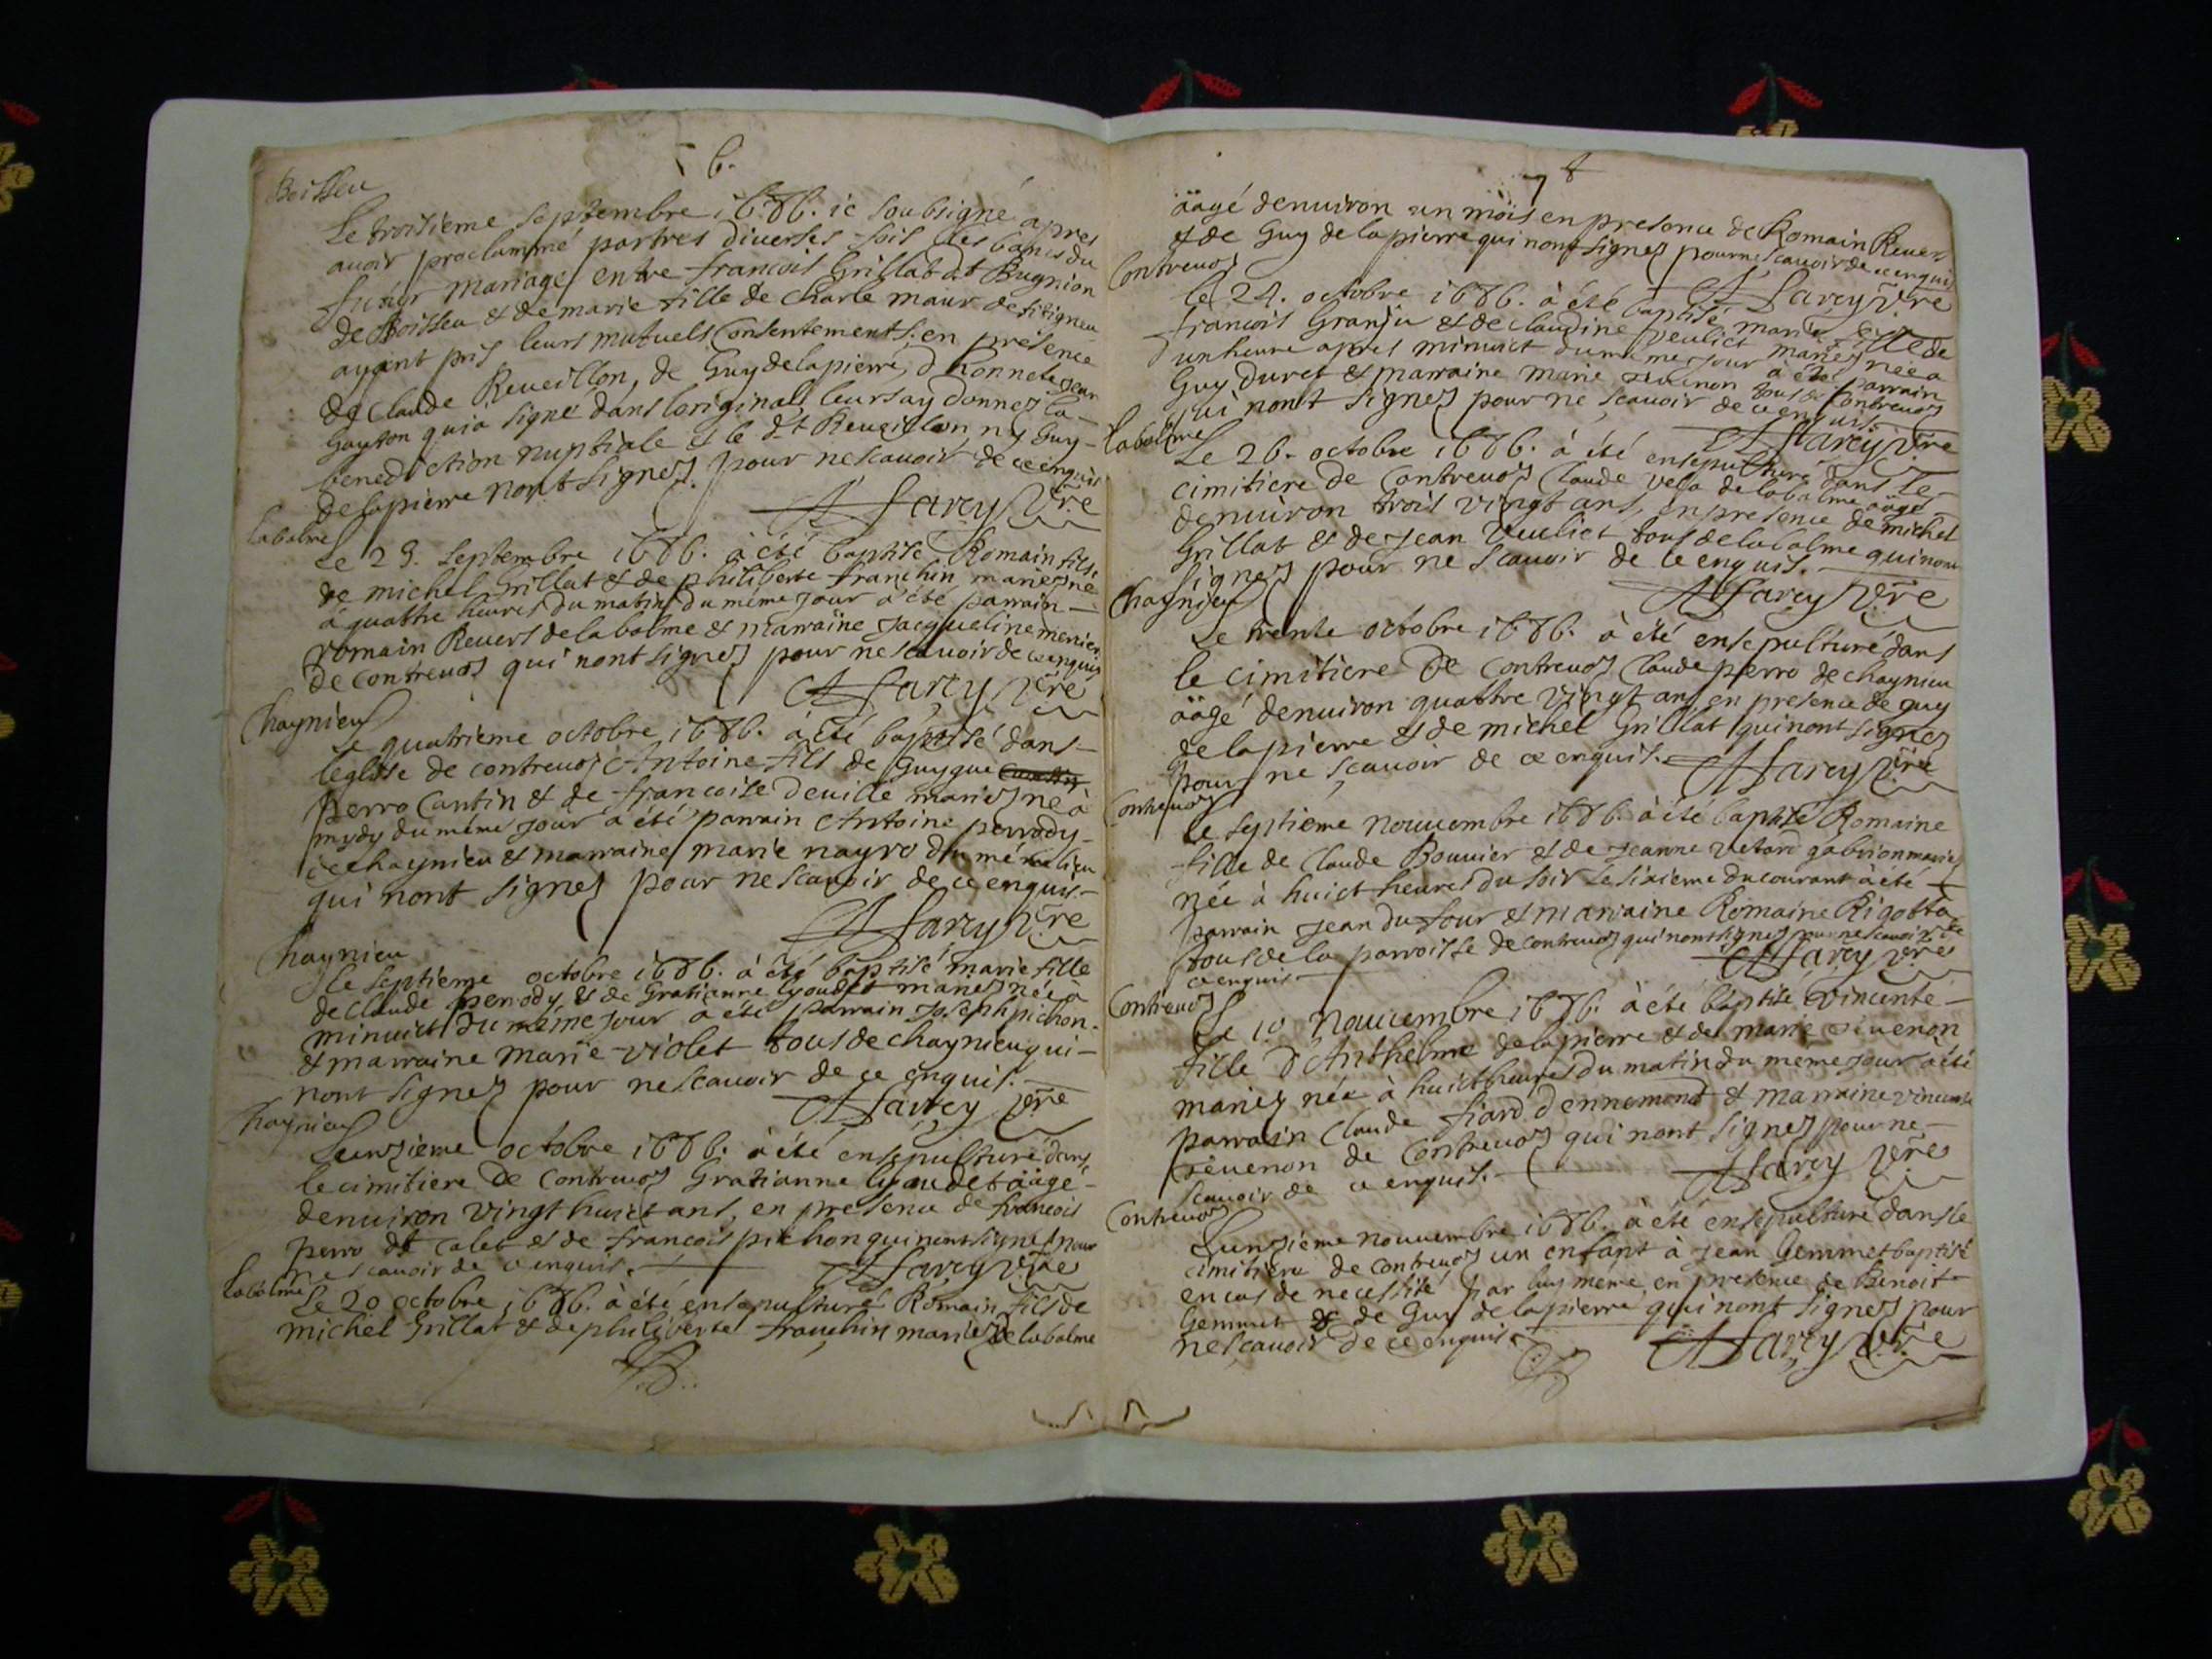 6.
Boisseu
Le troisieme septembre 1686. ie soubsigné apres
auoir proclammé par tres diuerses fois les banes du
futur mariage entre francois Grillat dt Bugnion
de Boisseu & de marie fille de Charle maur de
ayant pris leurs mutuels Consentements en presence
de Claude Reueillon, de Guy delapierre, d honnete Jean
Guyton qui a signé dans loriginal, leurs ay donnez la
benediction nuptiale & le dt Reueillon, ny Guy
delapierre nont signez pour ne scauoir de ce enquis
Sarcy ptre
labalme
Le 29. Septembre 1686. à été baptisé Romain fils
de michel Grillat & de philiberte franchin mariez né
à quattre heures du matin du méme jour a été parrain
romain Reuers de labalme & marraine Jacqueline mercier
de contreuoz qui nont signez pour ne scauoir de ce enquis
Sarcy ptre
Chaynieu
Le quatrieme octobre 1686. à été baptisé dans
leglise de contreuoz Antoine fils de Guygue
perro Cantin & de francoise deuille mariez né à
mydy du méme jour a été parrain Antoine perrody
de chaynieu & marraine marie nayro du méme lieu
qui nont signez pour ne scauoir de ce enquis
Sarcy ptre
Chaynieu
Le septieme octobre 1686. à été baptisé marie fille
de Claude perrody & de Gratianne lyoudet mariez née à
minuict du méme jour a été parrain Joseph pichon
& marraine marie violet tous de chaynieu qui
nont signez pour ne scauoir de ce enquis.
Sarcy ptre
Chaynieu
Lunzieme octobre 1686. à été ensepulturé dans
le cimitiere de Contreuoz Gratianne lyoudet äagé
denuiron vingt huict ans, en presence de francois
perro dt Calet & de francois pichon qui nont signez pour
ne scauoir de ce enquis.
Sarcy ptre
labalme
Le 20 octobre 1686. à été ensepulturé Romain fils de
michel Grillat & de philiberte franchin mariez de labalme
7
äagé denuiron un mois en presence de Romain Reuers
& de Guy delapierre qui nont signez pour ne scauoir de ce enquis
Sarcy ptre
Contreuoz
Le 24. octobre 1686. à été baptisé marie fille de
francois Granju & de claudine veulict mariez née a
d unheure apres minuict du méme jour a été parrain
Guy duret & marraine marie Jeuenon tous de Contreuoz
qui nont signez pour ne scauoir de ce enquis.
Sarcy ptre
labalme
Le 26. octobre 1686. à été ensepulturé dans le
cimitiere de Contreuoz Claude vela de labalme äagé
denuiron trois vingt ans, en presence de michel
Grillat & de Jean veulict tous de labalme qui nont
signez pour ne scauoir de ce enquis.
Sarcy ptre
Chaynieu
Le trente octobre 1686. à été ensepulturé dans
le cimitiere de Contreuoz Claude perro de chaynieu
äagé denuiron quattre vingt ans en presence de guy
delapierre & de michel Grillat qui nont signez
pour ne scauoir de ce enquis.
Sarcy ptre
Contreuoz
Le septiéme nouuembre 1686. à été baptisé Romaine
fille de Claude Bouuier & de Jeanne vetard gabrion mariez
née à huict heures du soir le sixieme du courant à été
parrain Jean du four & marraine Romaine Rigotta
tous de la parroisse de contreuoz qui nont signez pour ne scauoir de
ce enquis
Sarcy ptre
Contreuoz
Le 10 nouuembre 1686. à été baptisé vincente
fille d'Anthelme delapierre & de marie Jeuenon
mariez née à huict heures du matin du meme jour a été
parrain Claude fiard dennemont & marraine vincente
Jeuenon de Contreuoz qui nont signez pour ne
scauoir de ce enquis.
Sarcy ptre
Contreuoz
Lunziéme nouuembre 1686. à été ensepulturé dans le
cimitiere de Contreuoz un enfant à Jean Gemmet baptisé
en cas de necessité par luy meme, en presence de Benoit
Gemmet & de Guy delapierre qui nont signez pour
ne scauoir de ce enquis
Sarcy ptre